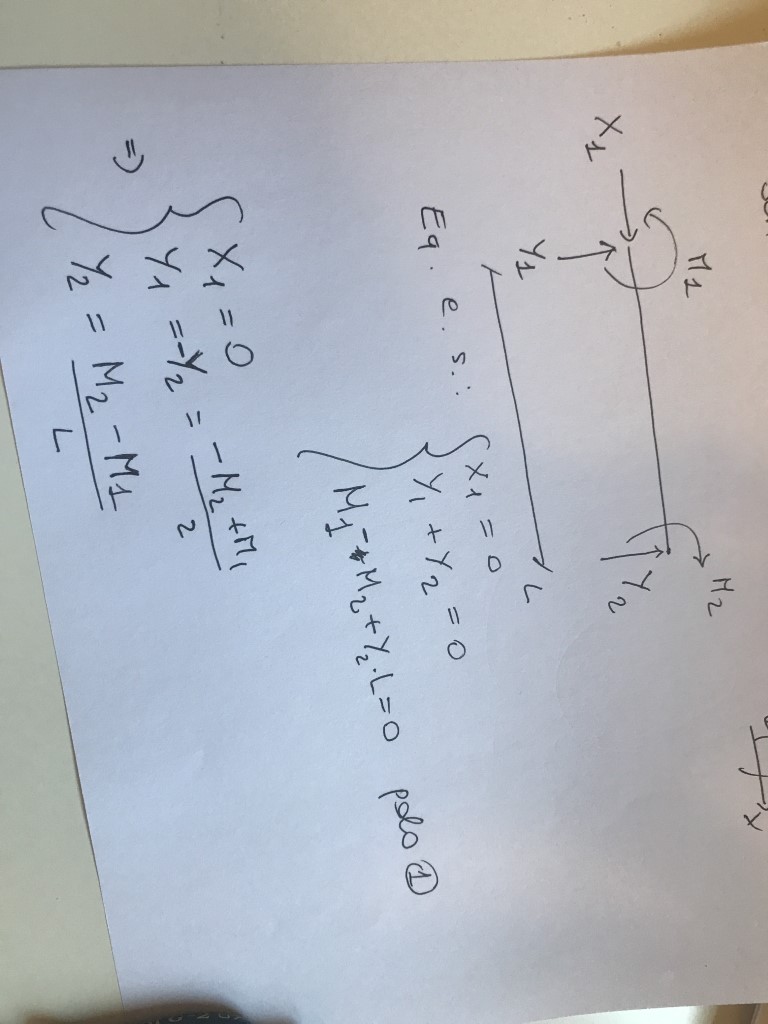 X1 M1 M2
Y1 Y2
L
Eq. e. s.:
{ X1 = 0
Y1 + Y2 = 0
M1 - M2 + Y2 · L = 0 polo ①
=> { X1 = 0
Y1 = -Y2 = -M2 + M1 / 2
Y2 = M2 - M1 / L
x